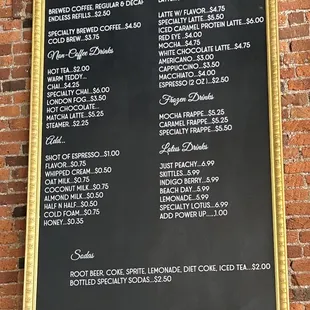 BREWED COFFEE, REGULAR & DECAF
ENDLESS REFILLS...$2.50
SPECIALTY BREWED COFFEE...$4.50
COLD BREW...$3.75
Non-Coffee Drinks
HOT TEA...$2.00
WARM TEDDY...
CHAI...$4.25
SPECIALTY CHAI...$6.00
LONDON FOG...$3.50
HOT CHOCOLATE...
MATCHA LATTE...$5.25
STEAMER. $2.25
Add...
SHOT OF ESPRESSO...$1.00
FLAVOR...$0.75
WHIPPED CREAM...$0.50
OAT MILK...$0.75
COCONUT MILK...$0.75
ALMOND MILK...$0.50
HALF N HALF...$0.50
COLD FOAM...$0.75
HONEY...$0.35
LATTE W/ FLAVOR...$4.75
SPECIALTY LATTE...$5.50
ICED CARAMEL PROTEIN LATTE...$6.00
RED EYE...$4.00
MOCHA...$4.75
WHITE CHOCOLATE LATTE...$4.75
AMERICANO...$3.00
CAPPUCCINO...$3.50
MACCHIATO...$4.00
ESPRESSO (2 OZ)...$2.50
Frozen Drinks
MOCHA FRAPPE...$5.25
CARAMEL FRAPPE...$5.25
SPECIALTY FRAPPE...$5.50
Lotus Drinks
JUST PEACHY...6.99
SKITTLES...5.99
INDIGO BERRY...5.99
BEACH DAY...5.99
LEMONADE...5.99
SPECIALTY LOTUS...6.99
ADD POWER UP.....1.00
Sodas
ROOT BEER, COKE, SPRITE, LEMONADE, DIET COKE, ICED TEA...$2.00
BOTTLED SPECIALTY SODAS...$2.50